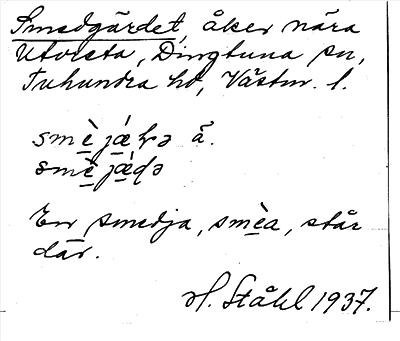 Smedgärdet, åker nära
Utveta, Dingtuna sn,
Tuhundra hd, Västm. l.
smè̱ já̱ e
smè̱ já̱
En smedja, smè̱a, står
där.
H. Ståhl 1937.